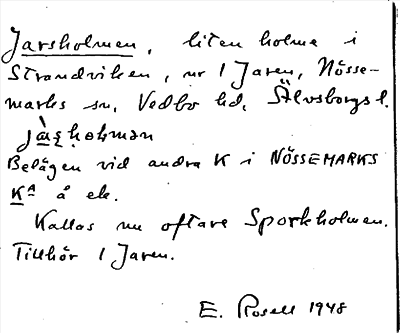 Jarsholmen, liten holme i
Strandviken, nr 1 Jaren, Nösse-
marks sn, Vedbo hd, Älvsborgs l.
jàʂhoɫmən
Belägen vid andra K i NÖSSEMARKS
Kᴬ å ek.
Kallas nu oftare Sporkholmen.
Tillhör 1 Jaren.
E. Rosell 1948